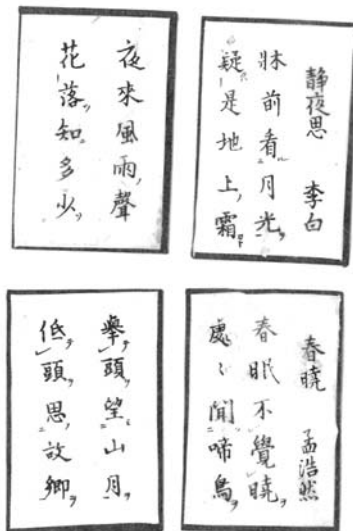 静夜思 李白
牀前看月光
疑是地上霜
夜來風雨聲
花落知多少
春曉 孟浩然
春眠不覺曉
處〻聞啼鳥
舉頭望山月
低頭思故鄉